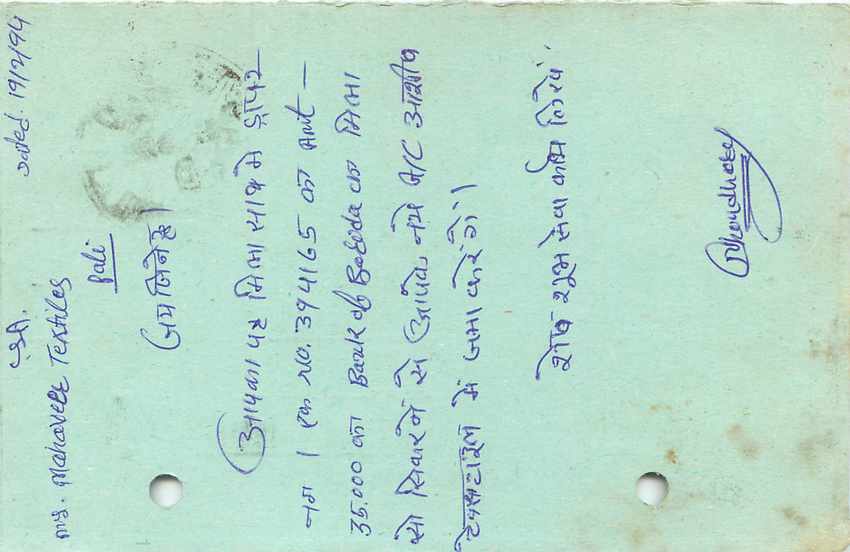 श्री.
Dated. 19/2/94
M/s. Mahaveer Textiles
Pali
जयजिनेन्द्र।
आपका पत्र मिला साथ में ड्राफ्ट
नग 1 एक No. 394165 का Amt -
35.000 का Bank of Baroda का मिला
सो सिकारने से आपके नये A/C
टेक्सटाइल में जमा करेंगे।
शेष शुभ सेवा कार्य लिखें.
Choudhary